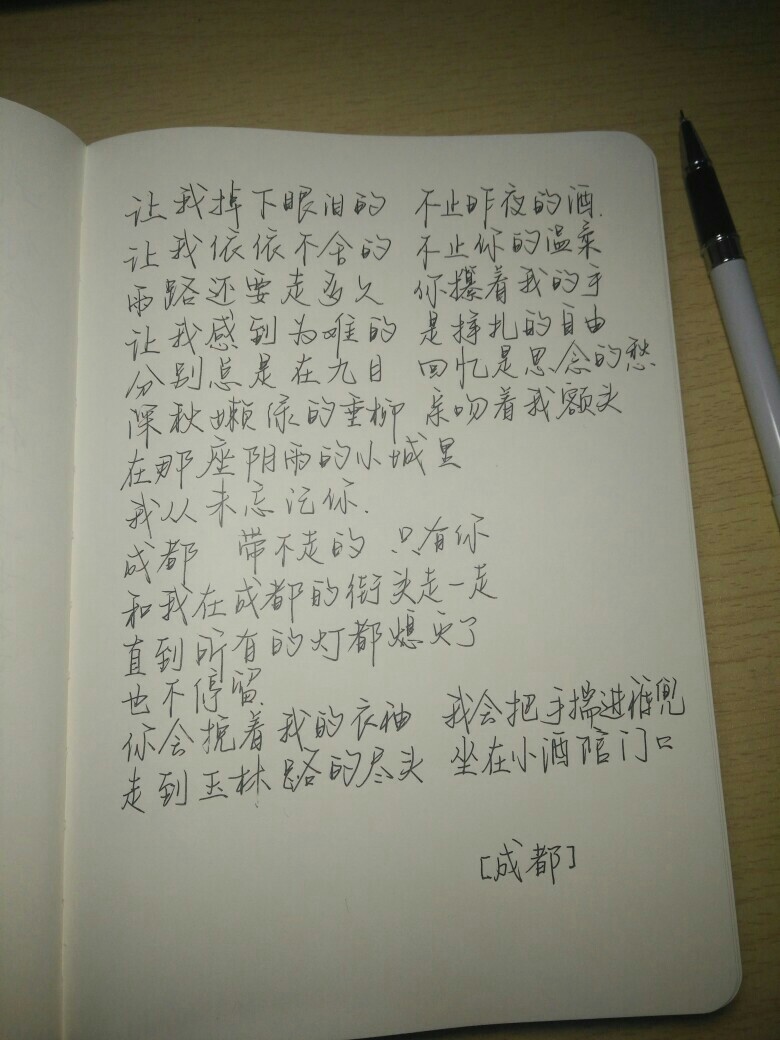 让我掉下眼泪的 不止昨夜的酒.
让我依依不舍的 不止你的温柔
雨路还要走多久 你攥着我的手
让我感到为难的 是挣扎的自由
分别总是在九月 回忆是思念的愁
深秋嫩绿的垂柳 亲吻着我额头
在那座阴雨的小城里
我从未忘记你.
成都 带不走的 只有你
和我在成都的街头走一走
直到所有的灯都熄灭了
也不停留.
你会挽着我的衣袖 我会把手揣进裤兜
走到玉林路的尽头 坐在小酒馆门口
[成都]